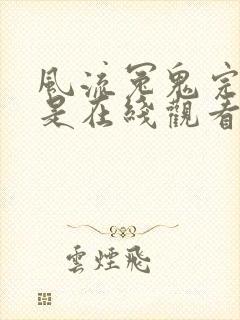 風流冤鬼完
是在綫觀看
雲煙飛